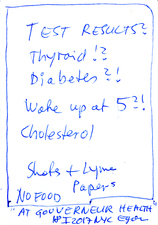 TEST RESULTS?
Thyroid!?
Diabetes?!
Wake up at 5?!
Cholesterol
Shots + Lyme
Papers
NO FOOD
AT GOUVERNEUR HEALTH
2017 NYC